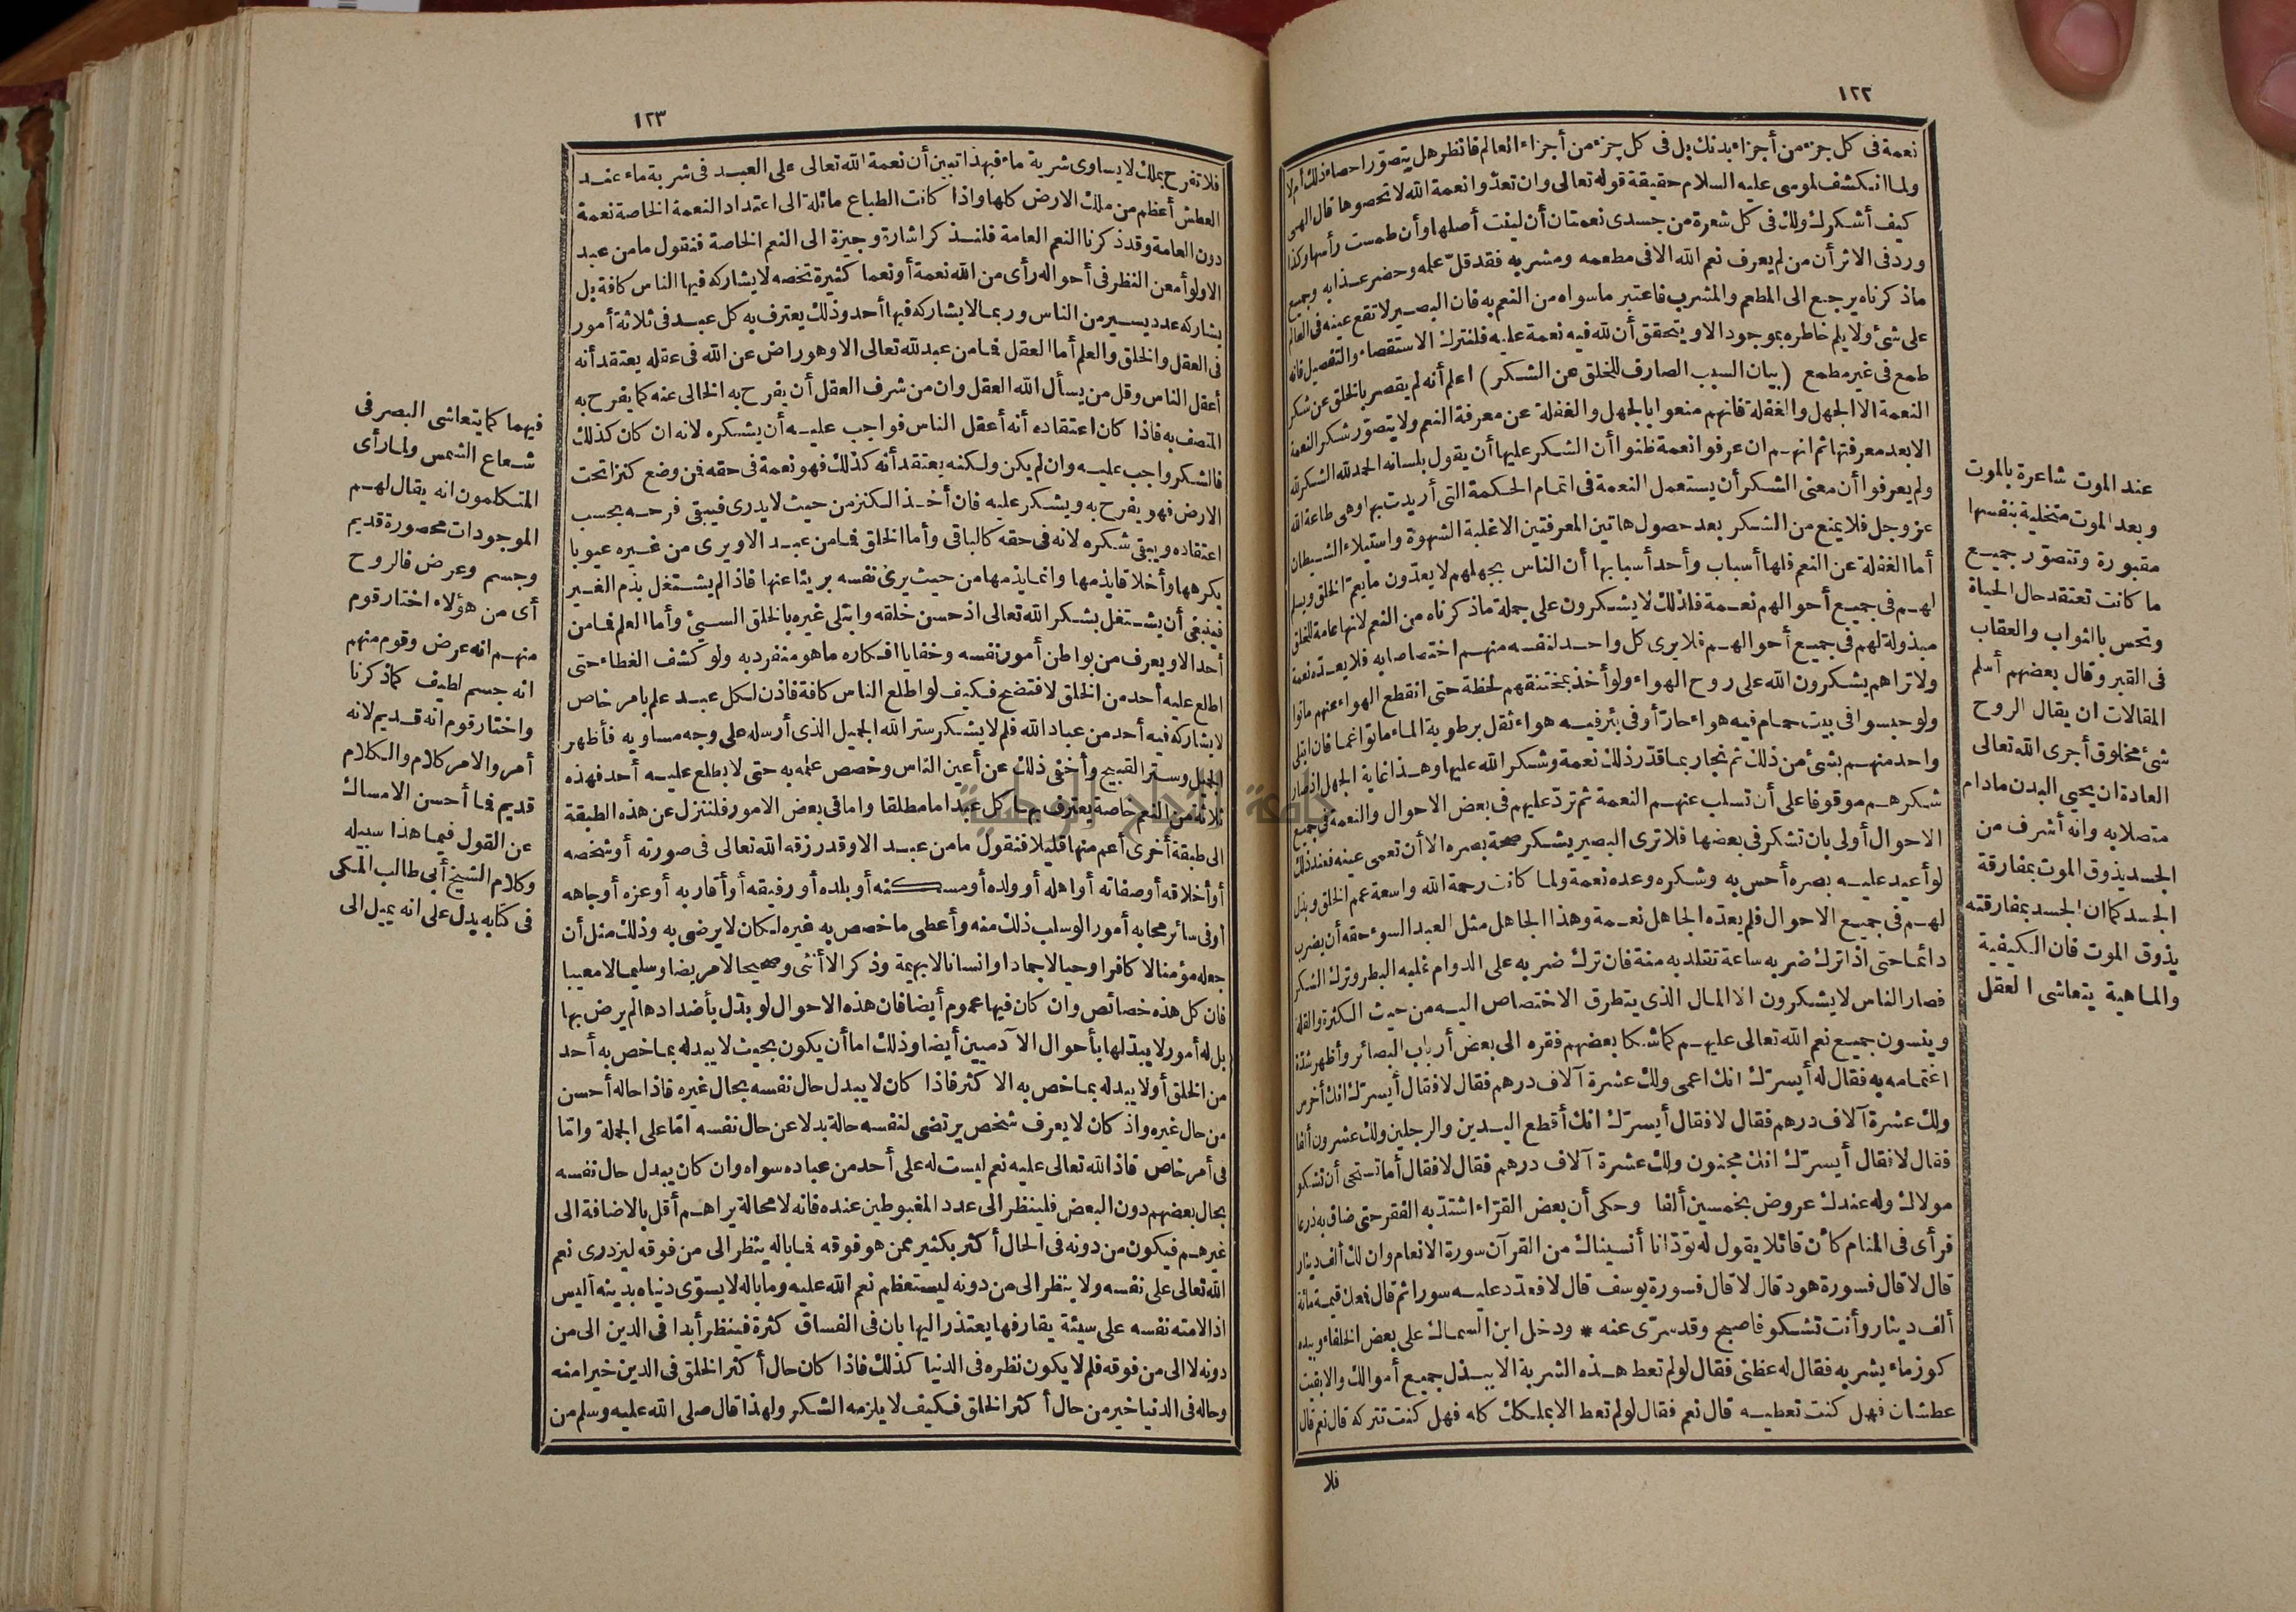 ١٢٢
نعمة فى كل جزء من أجزاء بدنك بل فى كل جزء من أجزاء العالم فانظر هل يتصوّر احصاء ذلك أم لا
ولما انكشف لموسى عليه السلام حقيقة قوله تعالى وان تعدّوا نعمة الله لا تحصوها قال الهى
كيف أشكرك ولك فى كل شعرة من جسدى نعمتان أن لينت أصلها وأن طمست رأسها وكذا
ورد فى الاثر أن من لم يعرف نعم الله الا فى مطعمه ومشربه فقد قلّ علمه وحضر عذابه وجميع
ماذكرناه يرجع الى المطعم والمشرب فاعتبر ماسواه من النعم به فان البصير لا تقع عينه فى العالم
على شئ ولا يلم خاطره بموجود الا ويتحقق أن لله فيه نعمة عليه فلنترك الاستقصاء والتفصيل فانه
طمع فى غير مطمع (بيان السبب الصارف للخلق عن الشكر) اعلم أنه لم يقصر بالخلق عن شكر
النعمة الا الجهل والغفلة فانهم منعوا بالجهل والغفلة عن معرفة النعم ولا يتصوّر شكر النعمة
الا بعد معرفتها ثم انهم ان عرفوا نعمة ظنوا أن الشكر عليها أن يقول بلسانه الحمد لله الشكر لله
ولم يعرفوا أن معنى الشكر أن يستعمل النعمة فى اتمام الحكمة التى أريدت بها وهى طاعة الله
عز وجل فلا يمنع من الشكر بعد حصول هاتين المعرفتين الا غلبة الشهوة واستيلاء الشيطان
أما الغفلة عن النعم فلها أسباب وأحد أسبابها أن الناس بجهلهم لا يعدّون مايعم الخلق ويسلم
لهم فى جميع أحوالهم نعمة فلذلك لا يشكرون على جملة ماذكرناه من النعم لانها عامة للخلق
مبذولة لهم فى جميع أحوالهم فلا يرى كل واحد لنفسه منهم اختصاصا به فلا يعدّه نعمة
ولا تراهم يشكرون الله على روح الهواء ولو أخذ بمختنقهم لحظة حتى انقطع الهواء عنهم ماتوا
ولو حبسوا فى بيت حمام فيه هواء حارّ أو فى بئر فيه هواء ثقل برطوبة الماء ماتوا غما فان ابتلى
واحد منهم بشئ من ذلك ثم نجا ربما قدّر ذلك نعمة وشكر الله عليها وهذا غاية الجهل اذ صار
شكرهم موقوفا على أن تسلب عنهم النعمة ثم تردّ عليهم فى بعض الاحوال والنعمة فى جميع
الاحوال أولى بان تشكر فى بعضها فلا ترى البصير يشكر صحة بصره الا أن تعمى عينه فعند ذلك
لو أعيد عليه بصره أحس به وشكره وعده نعمة ولما كانت رحمة الله واسعة عمم الخلق وبذل
لهم فى جميع الاحوال فلم يعدّه الجاهل نعمة وهذا الجاهل مثل العبد السوء حقه أن يضرب
دائما حتى اذا ترك ضربه ساعة تقلد به منة فان ترك ضربه على الدوام غلبه البطر وترك الشكر
فصار الناس لا يشكرون الا المال الذى يتطرق الاختصاص اليه من حيث الكثرة والقلة
وينسون جميع نعم الله تعالى عليهم كما شكا بعضهم فقره الى بعض أرباب البصائر وأظهر شدّة
اغتمامه به فقال له أيسرّك انك اعمى ولك عشرة آلاف درهم فقال لا فقال أيسرّك انك أخرس
ولك عشرة آلاف درهم فقال لا فقال أيسرّك انك أقطع اليدين والرجلين ولك عشرون ألفا
فقال لا فقال أيسرّك انك مجنون ولك عشرة آلاف درهم فقال لا فقال أما تستحى أن تشكو
مولاك وله عندك عروض بخمسين ألفا وحكى أن بعض القرّاء اشتدّ به الفقر حتى ضاق به ذرعا
فرأى فى المنام كأن قائلا يقول له تودّ انا أنسيناك من القرآن سورة الانعام وان لك ألف دينار
قال لا قال فسورة هود قال لا قال فسورة يوسف قال لا فعدّد عليه سورا ثم قال فمعك قيمة مائة
ألف دينار وأنت تشكو فاصبح وقد سرّى عنه * ودخل ابن السماك على بعض الخلفاء وبيده
كوز ماء يشربه فقال له عظنى فقال لو لم تعط هذه الشربة الا ببذل جميع أموالك والا بقيت
عطشان فهل كنت تعطيه قال نعم فقال لو لم تعط الا بملكك كله فهل كنت تتركه قال نعم قال
فلا
عند الموت شاعرة بالموت
وبعد الموت متخلية بنفسها
مقبورة وتتصوّر جميع
ما كانت تعتقد حال الحياة
وتحس بالثواب والعقاب
فى القبر وقال بعضهم أسلم
المقالات ان يقال الروح
شئ مخلوق أجرى الله تعالى
العادة ان يحيى البدن مادام
متصلا به وانه أشرف من
الجسد يذوق الموت بمفارقة
الجسد كما ان الجسد بمفارقته
يذوق الموت فان الكيفية
والماهية يتعاشى العقل
١٢٣
فلا تفرح بملك لا يساوى شربة ماء فبهذا تبين أن نعمة الله تعالى على العبد فى شربة ماء عند
العطش أعظم من ملك الارض كلها واذا كانت الطباع مائلة الى اعتداد النعمة الخاصة نعمة
دون العامة وقد ذكرنا النعم العامة فلنذكر اشارة وجيزة الى النعم الخاصة فنقول ما من عبد
الا ولو أمعن النظر فى أحواله رأى من الله نعمة أو نعما كثيرة تخصه لا يشاركه فيها الناس كافة بل
يشاركه عدد يسير من الناس وربما لا يشاركه فيها أحد وذلك يعترف به كل عبد فى ثلاثة أمور
فى العقل والخلق والعلم أما العقل فما من عبد لله تعالى الا وهو راض عن الله فى عقله يعتقد أنه
أعقل الناس وقل من يسأل الله العقل وان من شرف العقل أن يفرح به الخالى عنه كما يفرح به
المتصف به فاذا كان اعتقاده أنه أعقل الناس فواجب عليه أن يشكره لانه ان كان كذلك
فالشكر واجب عليه وان لم يكن ولكنه يعتقد أنه كذلك فهو نعمة فى حقه فمن وضع كنزا تحت
الارض فهو يفرح به ويشكر عليه فان أخذ الكنز من حيث لا يدرى فيبقى فرحه بحسب
اعتقاده ويبقى شكره لانه فى حقه كالباقى وأما الخلق فما من عبد الا ويرى من غيره عيوبا
يكرهها وأخلاقا يذمها وانما يذمها من حيث يرى نفسه بريئا عنها فاذا لم يشتغل بذم الغير
فينبغى أن يشتغل بشكر الله تعالى اذ حسن خلقه وابتلى غيره بالخلق السيئ وأما العلم فما من
أحد الا ويعرف من بواطن أمور نفسه وخفايا افكاره ما هو منفرد به ولو كشف الغطاء حتى
اطلع عليه أحد من الخلق لافتضح فكيف لو اطلع الناس كافة فاذن لكل عبد علم بامر خاص
لا يشاركه فيه أحد من عباد الله فلم لا يشكر ستر الله الجميل الذى أرسله على وجه مساويه فأظهر
الجميل وستر القبيح وأخفى ذلك عن أعين الناس وخصص علمه به حتى لا يطلع عليه أحد فهذه
ثلاثة من النعم خاصة يعترف بها كل عبد اما مطلقا واما فى بعض الامور فلننزل عن هذه الطبقة
الى طبقة أخرى أعم منها قليلا فنقول ما من عبد الا وقد رزقه الله تعالى فى صورته أو شخصه
أو أخلاقه أو صفاته أو اهله أو ولده أو مسكنه أو بلده أو رفيقه أو أقاربه أو عزه أو جاهه
أو فى سائر محابه أمورا لو سلب ذلك منه وأعطى ماخصص به غيره لكان لا يرضى به وذلك مثل أن
جعله مؤمنا لا كافرا وحيا لا جمادا وانسانا لا بهيمة وذكرا لا أنثى وصحيحا لا مريضا وسليما لا معيبا
فان كل هذه خصائص وان كان فيها عموم أيضا فان هذه الاحوال لو بدّل بأضدادها لم يرض بها
بل له أمور لا يبدّلها بأحوال الآدميين أيضا وذلك اما أن يكون بحيث لا يبدله بما خص به أحد
من الخلق أو لا يبدله بما خص به الاكثر فاذا كان لا يبدل حال نفسه بحال غيره فاذا حاله أحسن
من حال غيره واذ كان لا يعرف شخص يرتضى لنفسه حالة بدلا عن حال نفسه امّا على الجملة وامّا
فى أمر خاص فاذا لله تعالى عليه نعم ليست له على أحد من عباده سواه وان كان يبدل حال نفسه
بحال بعضهم دون البعض فلينظر الى عدد المغبوطين عنده فانه لا محالة يراهم أقل بالاضافة الى
غيرهم فيكون من دونه فى الحال أكثر بكثير ممن هو فوقه فما باله ينظر الى من فوقه ليزدرى نعم
الله تعالى على نفسه ولا ينظر الى من دونه ليستعظم نعم الله عليه وما باله لا يسوّى دنياه بدينه أليس
اذا لامته نفسه على سيئة يقارفها يعتذر اليها بان فى الفساق كثرة فينظر أبدا فى الدين الى من
دونه لا الى من فوقه فلم لا يكون نظره فى الدنيا كذلك فاذا كان حال أكثر الخلق فى الدين خيرا منه
وحاله فى الدنيا خير من حال أكثر الخلق فكيف لا يلزمه الشكر ولهذا قال صلى الله عليه وسلم من
فيهما كما يتعاشى البصر فى
شعاع الشمس ولما رأى
المتكلمون انه يقال لهم
الموجودات محصورة قديم
وجسم وعرض فالروح
أى من هؤلاء اختار قوم
منهم انه عرض وقوم منهم
انه جسم لطيف كما ذكرنا
واختار قوم انه قديم لانه
أمر والامر كلام والكلام
قديم فما أحسن الامساك
عن القول فيما هذا سبيله
وكلام الشيخ أبى طالب المكى
فى كتابه يدل على انه يميل الى